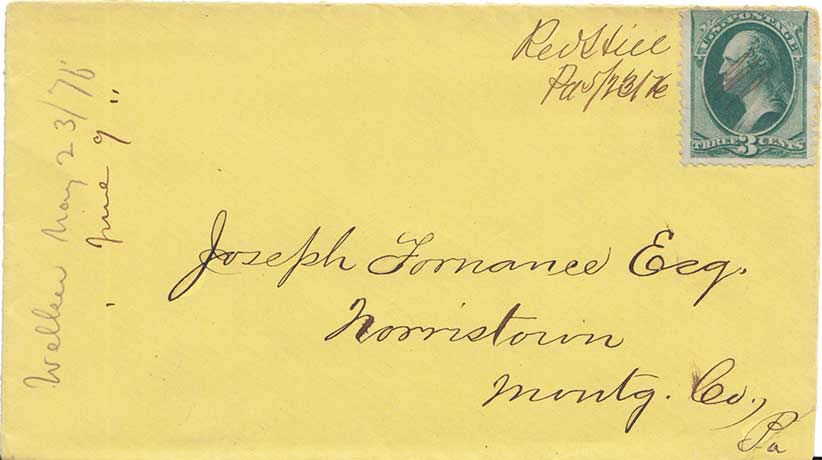 Red Hill
Pa 5/23/76
U.S. POSTAGE
THREE 3 CENTS
Joseph Fornance Esq.
Norristown
Montg. Co.,
Pa
Welker May 23/76
June 9 "